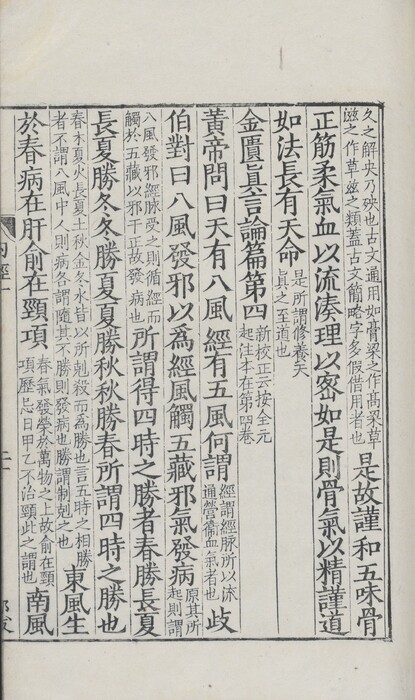 久之解央乃殃也古文通用如膏粱之作高梁草滋之作草兹之類蓋古文簡略字多假借用者也是故謹和五味骨
正筋柔氣血以流湊理以密如是則骨氣以精謹道
如法長有天命是所謂修養天真之至道也
金匱真言論篇第四新校正云按全元起注本在第四卷
黃帝問曰天有八風經有五風何謂經謂經脉所以流通營衛血氣者也歧
伯對曰八風發邪以爲經風觸五藏邪氣發病原其所起則謂
八風發邪經脉受之則循經而觸於五藏以邪干正故發病也所謂得四時之勝者春勝長夏
長夏勝冬冬勝夏夏勝秋秋勝春所謂四時之勝也
春木夏火長夏土秋金冬水皆以所剋殺而為勝也言五時之相勝者不謂八風中人則病各謂隨其不勝則發病也勝謂制剋之也東風生
於春病在肝俞在頸項春氣發榮於萬物之上故俞在頸項歷忌日甲乙不治頸此之謂也南風